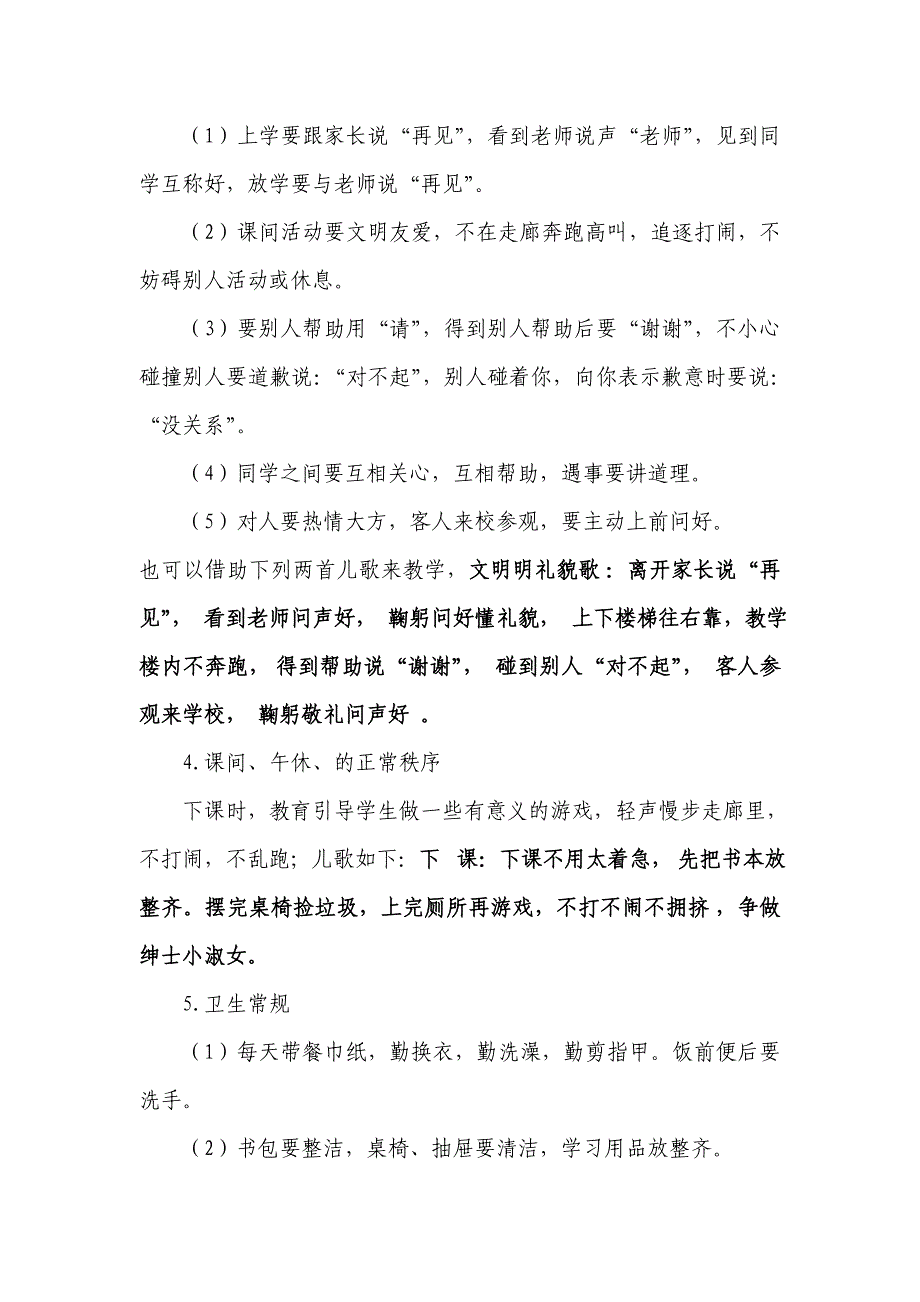 （1）上学要跟家长说“再见”，看到老师说声“老师”，见到同
学互称好，放学要与老师说“再见”。
（2）课间活动要文明友爱，不在走廊奔跑高叫，追逐打闹，不
妨碍别人活动或休息。
（3）要别人帮助用“请”，得到别人帮助后要“谢谢”，不小心
碰撞别人要道歉说：“对不起”，别人碰着你，向你表示歉意时要说：
“没关系”。
（4）同学之间要互相关心，互相帮助，遇事要讲道理。
（5）对人要热情大方，客人来校参观，要主动上前问好。
也可以借助下列两首儿歌来教学，文明明礼貌歌：离开家长说“再
见”， 看到老师问声好， 鞠躬问好懂礼貌， 上下楼梯往右靠，教学
楼内不奔跑，得到帮助说“谢谢”， 碰到别人“对不起”， 客人参
观来学校， 鞠躬敬礼问声好 。
4.课间、午休、的正常秩序
下课时，教育引导学生做一些有意义的游戏，轻声慢步走廊里，
不打闹，不乱跑；儿歌如下：下 课：下课不用太着急，先把书本放
整齐。摆完桌椅捡垃圾，上完厕所再游戏，不打不闹不拥挤 ，争做
绅士小淑女。
5.卫生常规
（1）每天带餐巾纸，勤换衣，勤洗澡，勤剪指甲。饭前便后要
洗手。
（2）书包要整洁，桌椅、抽屉要清洁，学习用品放整齐。